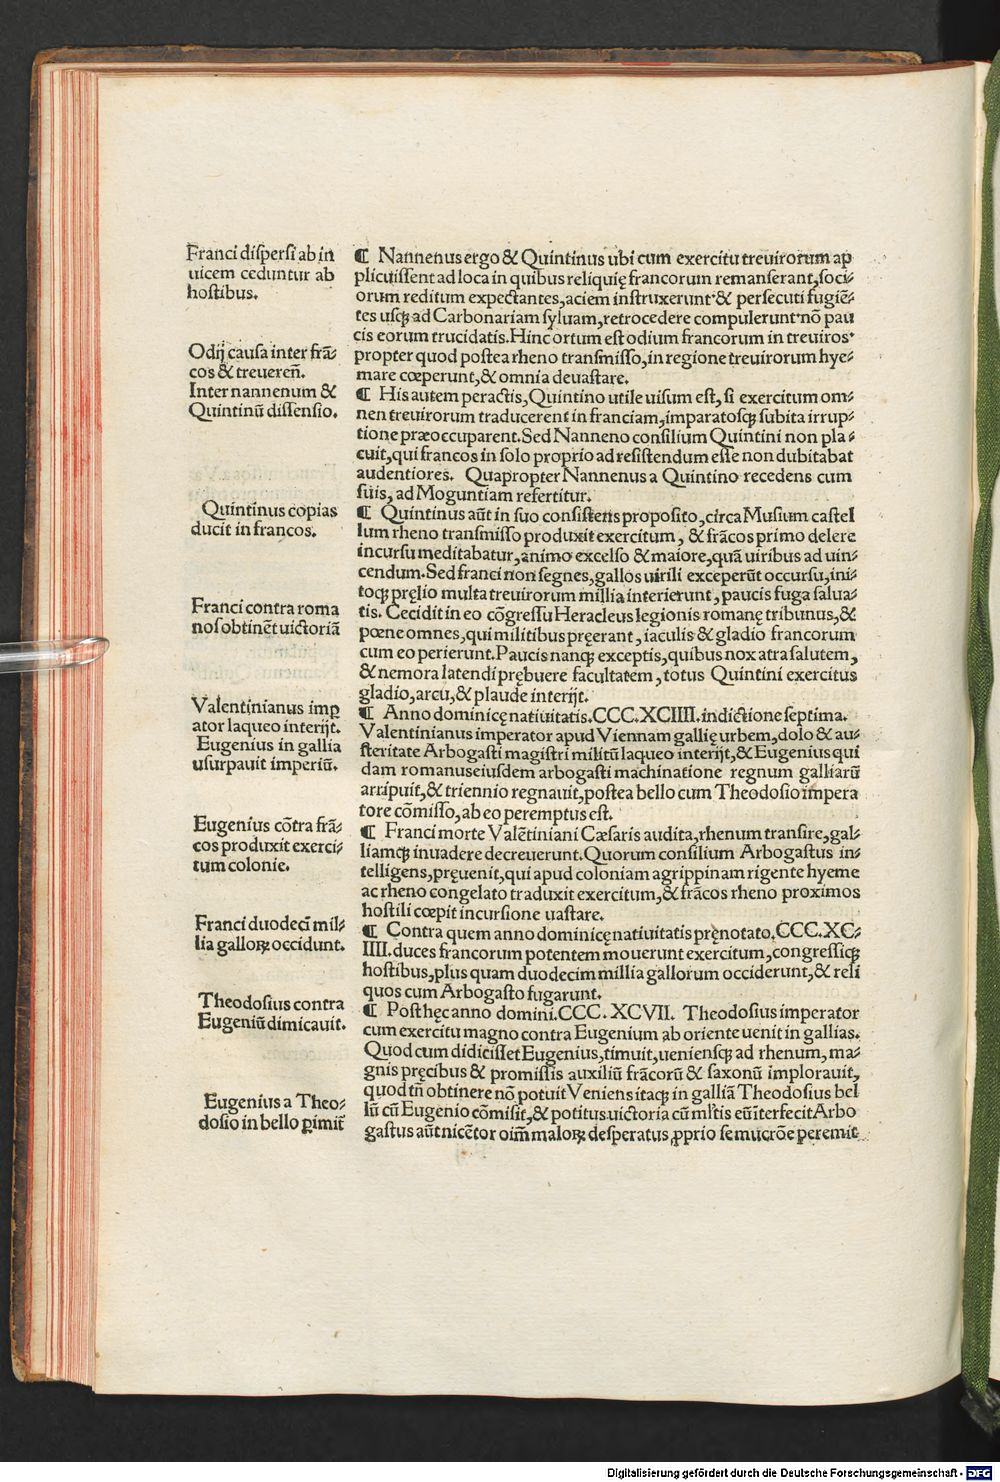 Franci dispersi ab in
uicem ceduntur ab
hostibus.
Odij causa inter frā⸗
cos & treuereñ.
Inter nannenum &
Quintinū dissensio.
Quintinus copias
ducit in francos.
Franci contra roma
nos obtinēt uictoriā
Valentinianus imp
ator laqueo interijt.
Eugenius in gallia
usurpauit imperiū.
Eugenius cōtra frā⸗
cos produxit exerci⸗
tum colonie.
Franci duodeci mil⸗
lia galloꝝ occidunt.
Theodosius contra
Eugeniū dimicauit.
Eugenius a Theo⸗
dosio in bello ꝑimit̄
¶ Nannenus ergo & Quintinus ubi cum exercitu treuirorum ap
plicuissent ad loca in quibus reliquię francorum remanserant, soci⸗
orum reditum expectantes, aciem instruxerunt·& persecuti fugiē⸗
tes usqꝫ ad Carbonariam syluam, retrocedere compulerunt·nō pau
cis eorum trucidatis. Hinc ortum est odium francorum in treuiros·
propter quod postea rheno transmisso, in regione treuirorum hye⸗
mare cœperunt, & omnia deuastare.
¶ His autem peractis, Quintino utile uisum est, si exercitum om⸗
nen treuirorum traducerent in franciam, imparatosqꝫ subita irrup⸗
tione præoccuparent. Sed Nanneno consilium Quintini non pla⸗
cuit, qui francos in solo proprio ad resistendum esse non dubitabat
audentiores. Quapropter Nannenus a Quintino recedens cum
suis, ad Moguntiam refertitur.
¶ Quintinus aūt in suo consistens proposito, circa Musium castel
lum rheno transmisso produxit exercitum, & frācos primo delere
incursu meditabatur, animo excelso & maiore, quā uiribus ad uin⸗
cendum. Sed franci non segnes, gallos uirili exceperūt occursu, ini⸗
toqꝫ pręlio multa treuirorum millia interierunt, paucis fuga salua⸗
tis. Cecidit in eo cōgressu Heracleus legionis romanę tribunus, &
pœne omnes, qui militibus pręerant, iaculis & gladio francorum
cum eo perierunt. Paucis nanqꝫ exceptis, quibus nox atra salutem,
& nemora latendi prębuere facultatem, totus Quintini exercitus
gladio, arcu, & plaude interijt.
¶ Anno dominicę natiuitatis. CCC. XCIIII. indictione septima.
Valentinianus imperator apud Viennam gallię urbem, dolo & au⸗
steritate Arbogasti magistri militū laqueo interijt, & Eugenius qui
dam romanus eiusdem arbogasti machinatione regnum galliarū
arripuit, & triennio regnauit, postea bello cum Theodosio impera
tore cōmisso, ab eo peremptus est.
¶ Franci morte Valētiniani Cæsaris audita, rhenum transire, gal⸗
liamqꝫ inuadere decreuerunt. Quorum consilium Arbogastus in⸗
telligens, pręuenit, qui apud coloniam agrippinam rigente hyeme
ac rheno congelato traduxit exercitum, & frācos rheno proximos
hostili cœpit incursione uastare.
¶ Contra quem anno dominicę natiuitatis pręnotato. CCC. XC⸗
IIII. duces francorum potentem mouerunt exercitum, congressiqꝫ
hostibus, plus quam duodecim millia gallorum occiderunt, & reli
quos cum Arbogasto fugarunt.
¶ Post hęc anno domini. CCC. XCVII. Theodosius imperator
cum exercitu magno contra Eugenium ab oriente uenit in gallias.
Quod cum didicisset Eugenius, timuit, ueniensqꝫ ad rhenum, ma⸗
gnis pręcibus & promissis auxiliū frācorū & saxonū implorauit,
quod tñ obtinere nō potuit Veniens itaqꝫ in galliā Theodosius bel
lū cū Eugenio cōmisit, & potitus uictoria cū ml̄tis eū īterfecit Arbo
gastus aūt nicētor oīm̄ maloꝝ desperatus, ꝓprio se mucrōe peremit
Digitalisierung gefördert durch die Deutsche Forschungsgemeinschaft - DFG